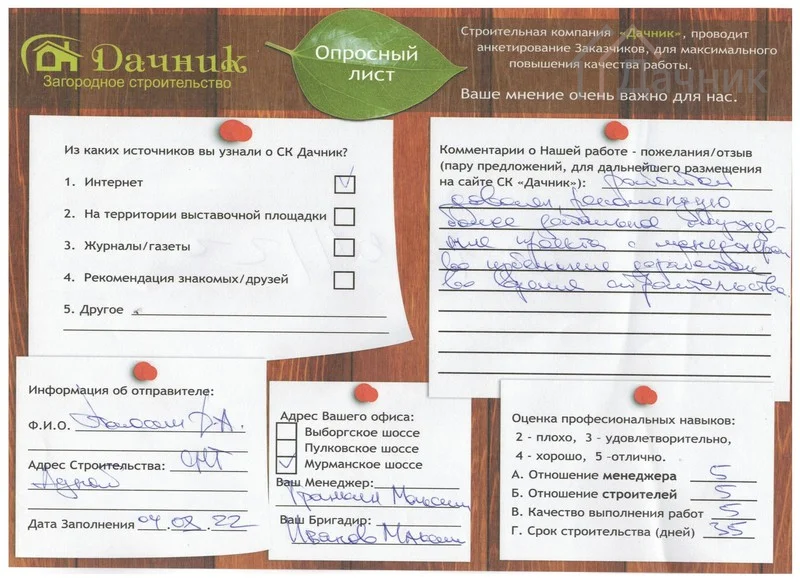 Дачник
Загородное строительство
Опросный
лист
Строительная компания «Дачник», проводит
анкетирование Заказчиков, для максимального
повышения качества работы.
Дачник
Ваше мнение очень важно для нас.
Из каких источников вы узнали о СК Дачник?
1. Интернет
2. На территории выставочной площадки
3. Журналы/газеты
4. Рекомендация знакомых/друзей
5. Другое
Комментарии о Нашей работе - пожелания/отзыв
(пару предложений, для дальнейшего размещения
на сайте СК «Дачник»): работой
доволен, рекомендую
более детальное обсужде-
ние проекта с менеджером
во избежание доработок
во время строительства.
Информация об отправителе:
Ф.И.О.
Адрес Строительства: СНТ
Дата Заполнения 04.08.22
Адрес Вашего офиса:
Выборгское шоссе
Пулковское шоссе
Мурманское шоссе
Ваш Менеджер:
Максим
Ваш Бригадир:
Иванов Максим
Оценка професиональных навыков:
2 - плохо, 3 - удовлетворительно,
4 - хорошо, 5 -отлично.
А. Отношение менеджера 5
Б. Отношение строителей 5
В. Качество выполнения работ 5
Г. Срок строительства (дней) 35